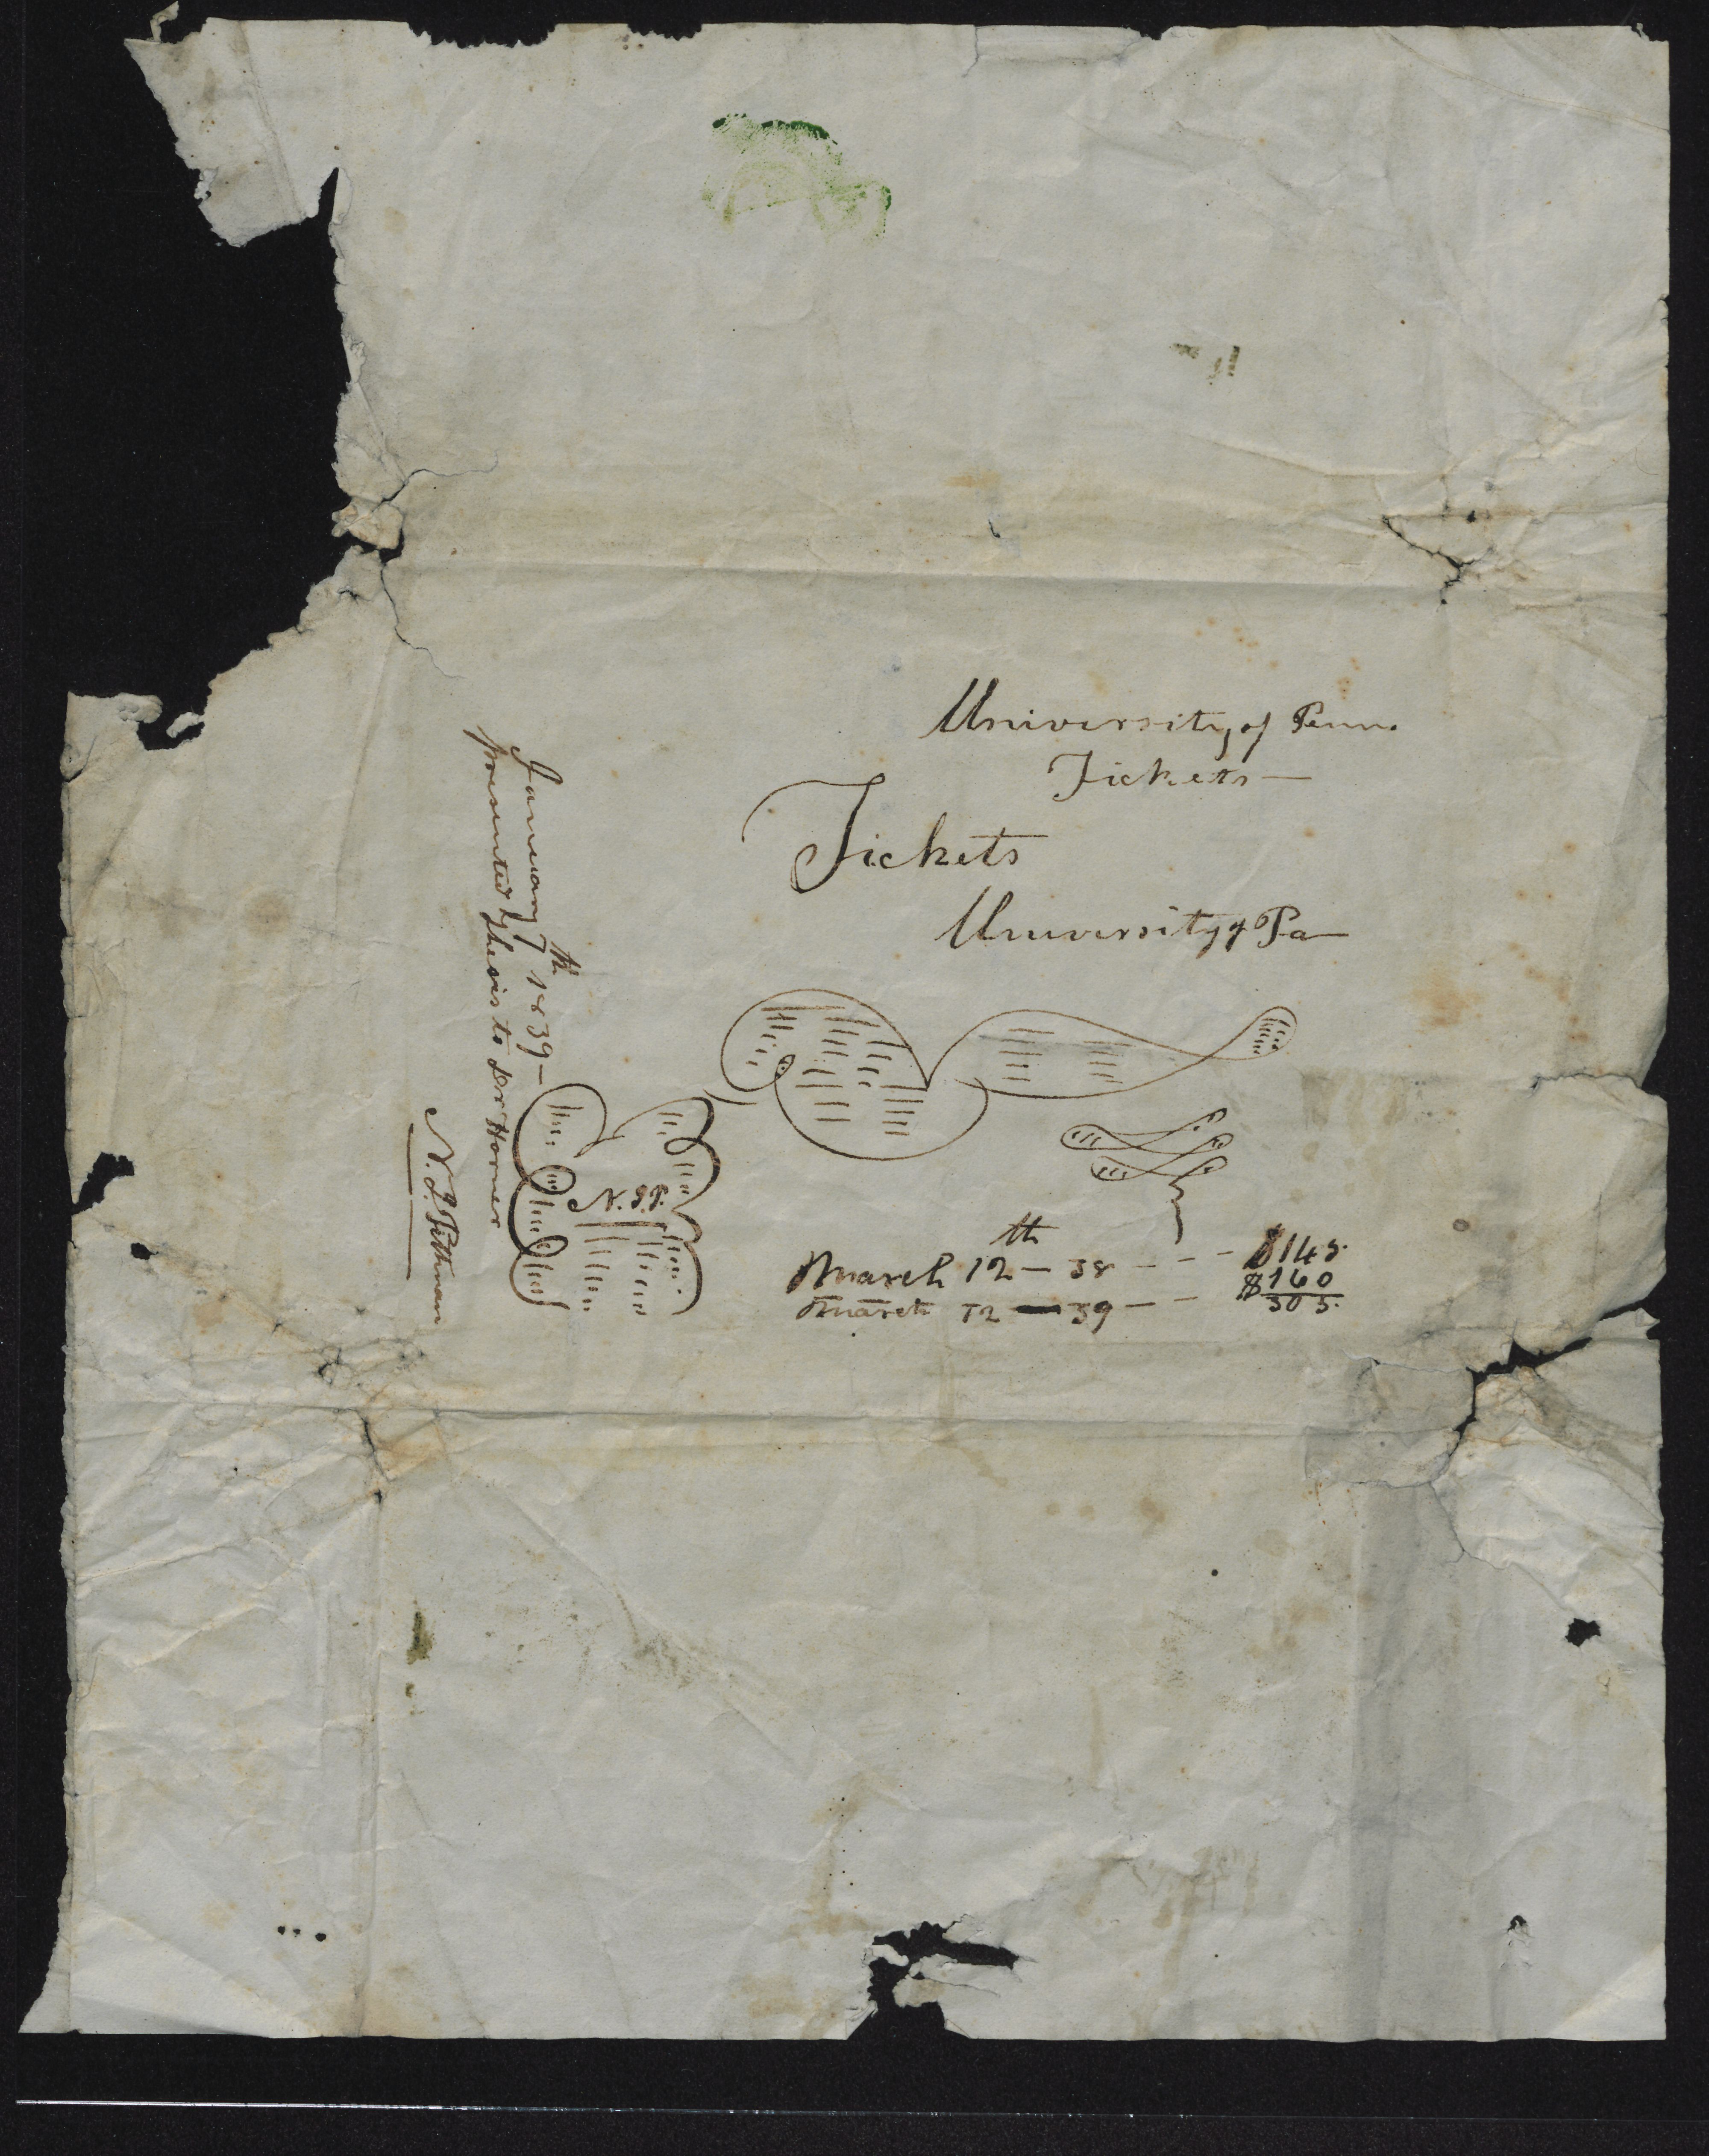 University of Penn.
Tickets —
Tickets
University of Pa —
January 7th 1839 —
presented Thesis to Dr Horner
N. J. Pittman
N. J. P.
March 12th — 38 - - - $145.
March 12 — 39 — - $160
305.